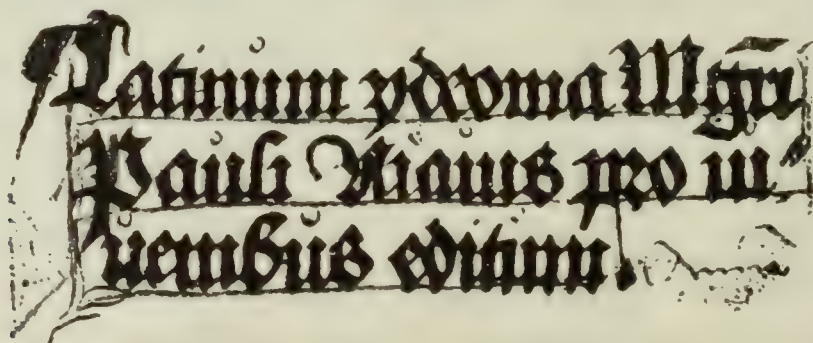 Latinum ydeoma Mgr̄i
Pauli Niauis pro iu⸗
uenibus editum.